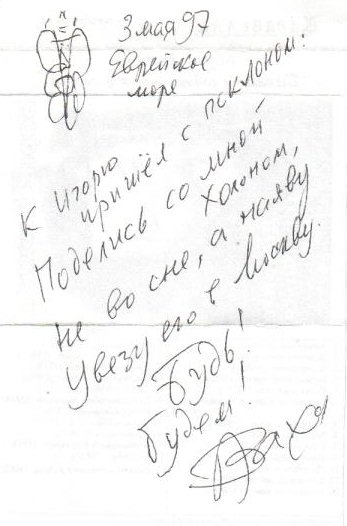 3 мая 97
Еврейское
море
К Игорю
пришёл с поклоном:
Поделись со мной
Холоном,
не во сне, а наяву
Увезу его в Москву.
Будь!
Будем!